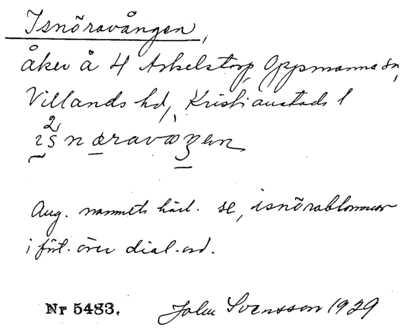 Isnöravången,
åker å 4 Arkelstorp, Oppmanna sn,
Villands hd, Kristianstads l
2
isnæravaŋen
Ang. namnets härl. se, isnörablommor
i fört. över dial.ord.
Nr 5483. John Svensson 1929